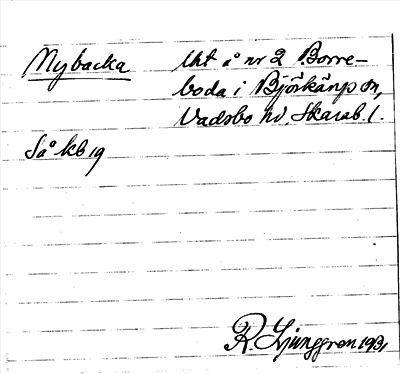 Nybacka Uht å nr 2 Borre-
boda i Björkängs sn,
Vadsbo hd, Skarab. l.
Så kb 19
R Ljunggren 1931